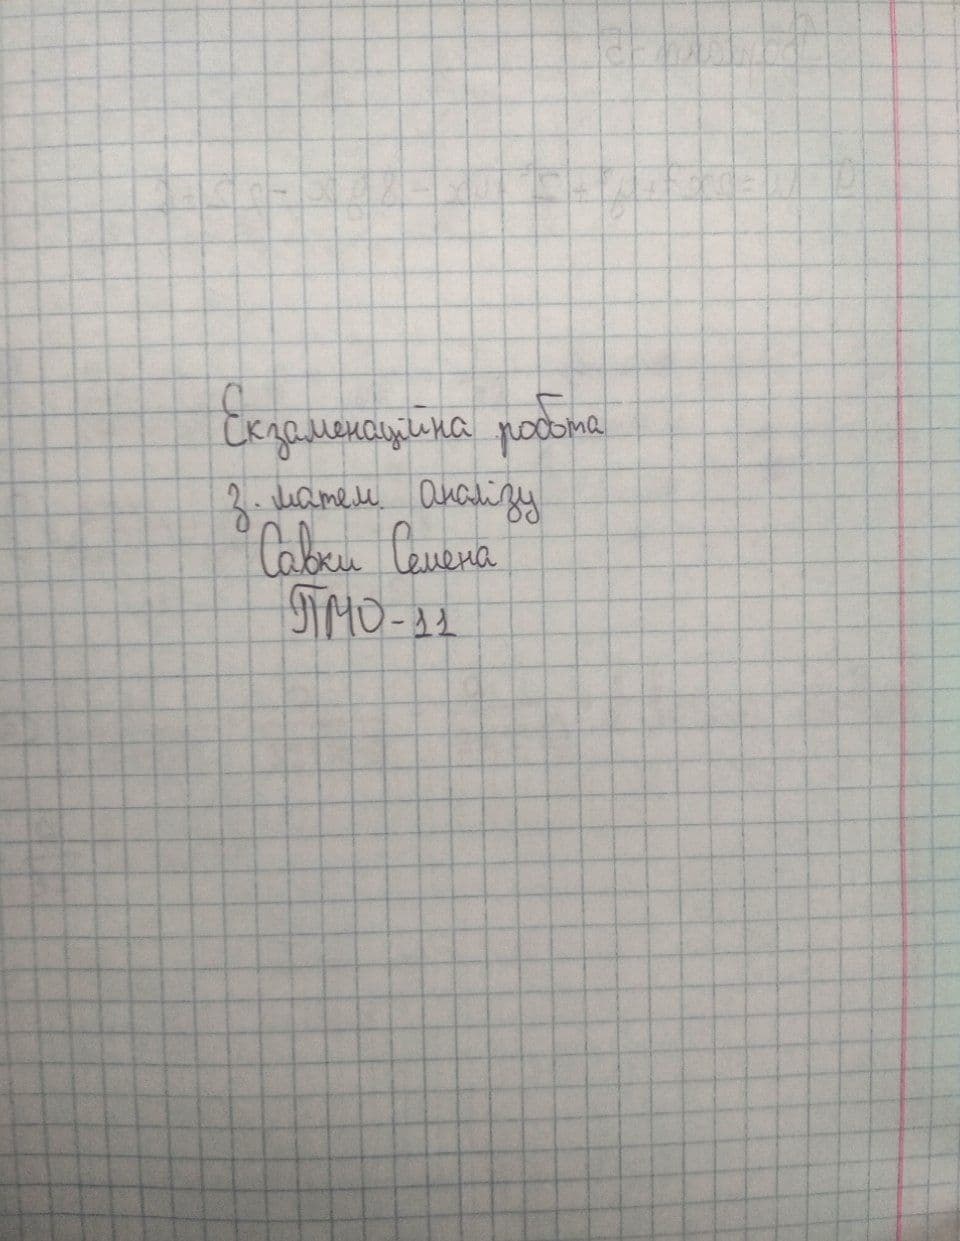 Екзаменаційна робота
з. матем. аналізу
Савки Семена
ПМО-11